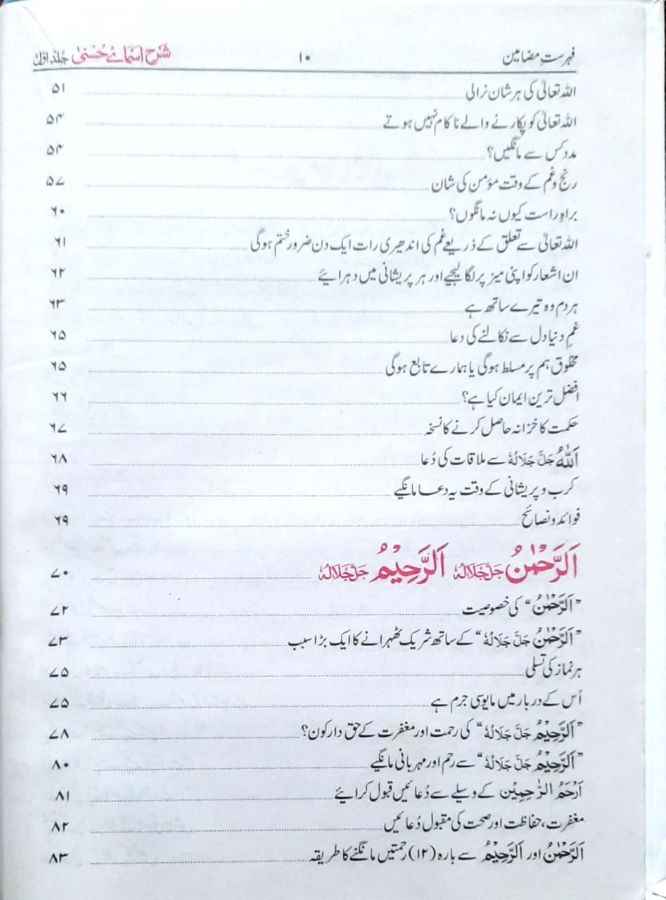 فہرست مضامین ۱۰ شرح اسمائے حسنیٰ جلد اول
اللہ تعالیٰ کی ہر شان نرالی ۵۱
اللہ تعالیٰ کو پکارنے والے ناکام نہیں ہوتے ۵۴
مدد کس سے مانگیں؟ ۵۴
رنج و غم کے وقت مؤمن کی شان ۵۷
براہِ راست کیوں نہ مانگوں؟ ۶۰
اللہ تعالیٰ سے تعلق کے ذریعے غم کی اندھیری رات ایک دن ضرور ختم ہوگی ۶۱
ان اشعار کو اپنی میز پر لگا لیجیے اور ہر پریشانی میں دہرایئے ۶۲
ہر دم وہ تیرے ساتھ ہے ۶۳
غمِ دنیا دل سے نکالنے کی دعا ۶۵
مخلوق ہم پر مسلط ہوگی یا ہمارے تابع ہوگی ۶۵
افضل ترین ایمان کیا ہے؟ ۶۶
حکمت کا خزانہ حاصل کرنے کا نسخہ ۶۷
اَللّٰهُ جَلَّ جَلَالُهٗ سے ملاقات کی دُعا ۶۸
کرب و پریشانی کے وقت یہ دعا مانگیے ۶۹
فوائد و نصائح ۶۹
اَلرَّحْمٰنُ جَلَّ جَلَالُهٗ اَلرَّحِيْمُ جَلَّ جَلَالُهٗ ۷۰
”اَلرَّحْمٰنُ“ کی خصوصیت ۷۲
”اَلرَّحْمٰنُ جَلَّ جَلَالُهٗ“ کے ساتھ شریک ٹھہرانے کا ایک بڑا سبب ۷۳
ہر نماز کی تسلی ۷۵
اُس کے دربار میں مایوسی جرم ہے ۷۵
”اَلرَّحِيْمُ جَلَّ جَلَالُهٗ“ کی رحمت اور مغفرت کے حق دار کون؟ ۷۸
”اَلرَّحِيْمُ جَلَّ جَلَالُهٗ“ سے رحم اور مہربانی مانگیے ۸۰
اَرْحَمُ الرّٰحِمِيْن کے وسیلے سے دُعائیں قبول کرایئے ۸۱
مغفرت، حفاظت اور صحت کی مقبول دُعائیں ۸۲
اَلرَّحْمٰنُ اور اَلرَّحِيْمُ سے بارہ (۱۲) رحمتیں مانگنے کا طریقہ ۸۳